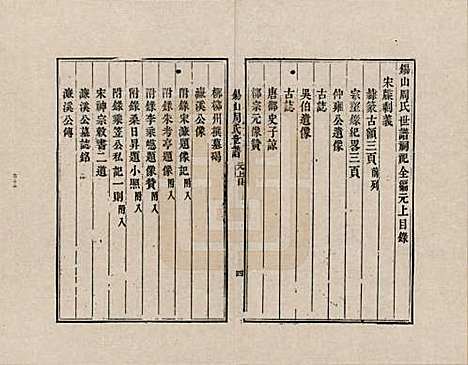 錫山周氏世譜祠記全編元上目錄
宋牒剩義
隸篆古額三頁前列
宗鑒緣紀畧三頁
仲雍公遺像
古誌
吳伯遺像
古誌
唐鄱史子諒
柳宗元像贊
錫山周氏世譜
元上目
四
柳柳州撰墓碣
濂溪公像
附錄宋濂題像記附入
附錄朱考亭題像贊附入
附錄李乘德題像附入
附錄桑日昇題小照附入
附錄乘笠公私記一則附入
宋神宗敕書二道
濂溪公墓誌銘
濂溪公傳